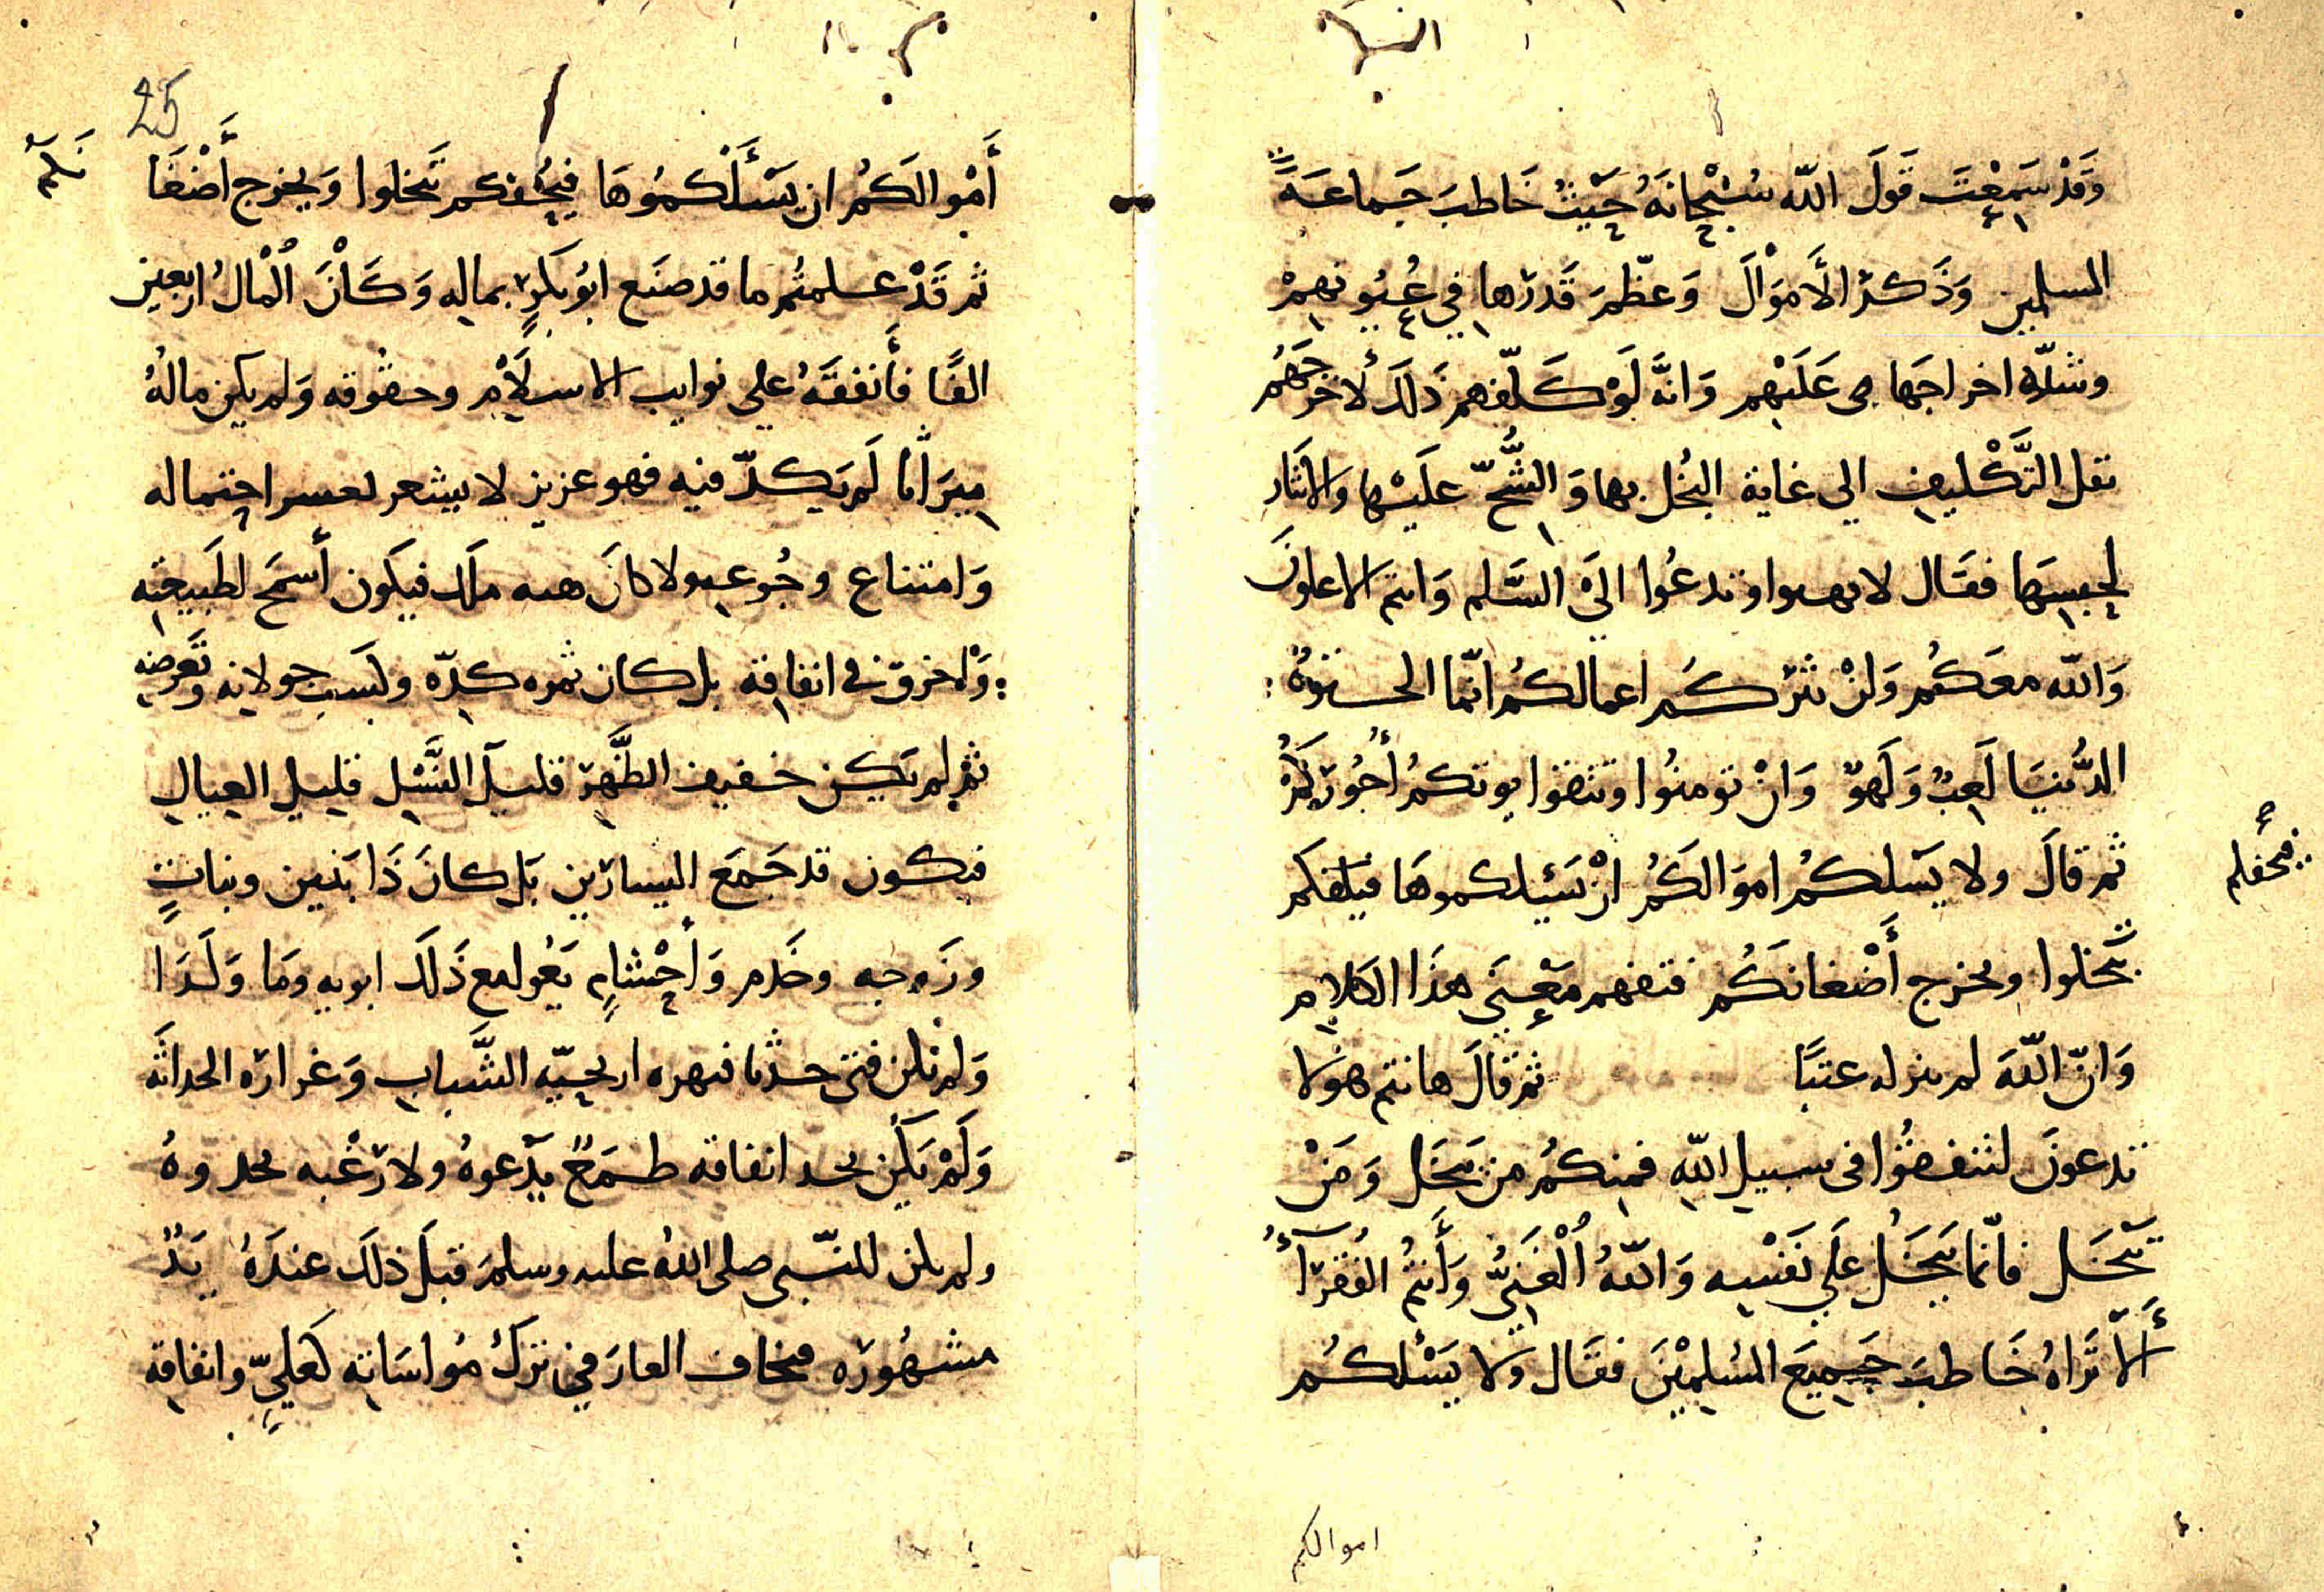 وَقَدْ سَمِعْتَ قَولَ اللّه سُبْحَانَهُ حَيْثُ خَاطبَ جَماعَةً
المسلمين وَذَكَرَ الأَموَالَ وَعظّمَ قَدرَها في عُيُونهمْ
وشدّة اخراجَها عَلَيْهم وَانَّه لَوْ كَلّفهم ذَلكَ لأخرجَهُم
ثقل التَّكْليف الي غاية البُخل بها وَالشُّحّ علَيْها والايثار
لحبسِهَا فقَال لا تهنوا وتدعُوا الَى السَّلم وَانتم الاعلونَ
وَاللّه معَكُم وَلَنْ يَتَرَكُم اعمالكُم انّما الحيوة
الدُّنيَا لَعِبٌ وَلَهوٌ وَانْ تومنُوا وتتقوا يوتكمُ أُجُورَكُمْ
ثم قالَ ولا يَسلكُم اموَالَكُم انْ يَسئلكموهَا فيحفكم
تَبْخَلوا ويخرج أَضْغانَكُم فتفهم مَعْنَى هَذَا الكلام
وَانّ اللّهَ لم ينزله عبثًا ثمّ قَالَ هانتم هولا
تدعونَ لتنفقُوا فى سبيل اللّه فمنكُم من يبخَل وَمَنْ
يَبْخَل فانّما يَبْخَلُ عَلَي نَفْسِه وَاللّهُ اُلْغَنِيُّ وَأَنتُمُ الفُقَرَآءُ
أَلاَ تَرَاهُ خَاطبَ جَمِيعَ المُسلِمِيْنَ فقَال ولا يَسْئلكُم
اموالكم
25
أَمْوالَكُم ان يَسْأَلْكمُوهَا فيُحْفكم تَبْخلوا وَيخرج أَضْغَا
نَكُم
ثم قَدْ علمتُم ما قد صنَع ابُو بَكرٍ بماله وَكَاْنَ اُلْمالُ اربعين
الفًا فأَنفقَهُ علي نوايب الاسلاَمْ وحقُوقه وَلم يكن مالهُ
ميرَاثًا لَم يَكدّ فيه فهو عزيز لا يشعر بعسر اجتماله
وَامتناع رجُوعه ولا كانَ هبه ملك فيكَون أسمَح لطَبيعته
وَاخرق في انفاقه بل كان ثمره كدّه وكسَب جولانه وتَعَرضه
ثم لم يَكن خفيف الظَّهر قليلَ النَّسْل قليل العيالِ
فيكون قد جَمَعَ اليسارَين بَل كانَ ذَا بَنين وبناتٍ
وزَوجه وخَدم وَأَحْشامٍ يَعُول مع ذَلكَ ابويه وَمَا وَلَدَا
وَلم يكن فتى حدثا فتهزه اريحيّة الشَّباب وَغرارَه الحداثَه
وَلَمْ يَكُن بحد انفاقه طمَعٌ يَدْعوهُ ولا رَغْبه تحدوهُ
ولم يكن للنّبى صلى اللهُ عليه وسلمَ قبَلَ ذلكَ عندَهُ يَدٌ
مشهُورَه فيخاف العارَ في تَركُ مُواسَاته كعَليٍّ وانفاقه